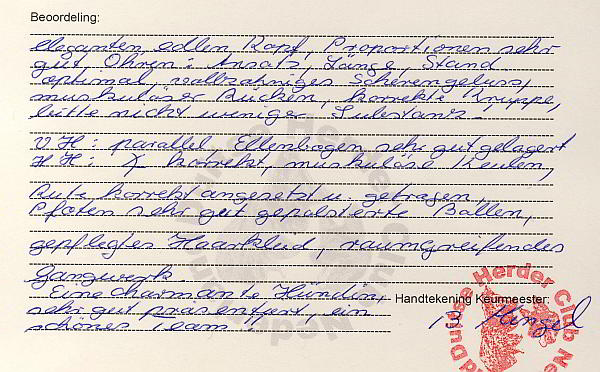 Beoordeling:
eleganten edlen Kopf, Proportionen sehr
gut, Ohren: Ansatz, Länge, Stand
optimal, vollzahniges Scherengebiss,
muskulöser Rücken, korrekte Kruppe,
bitte nicht weniger Substanz.
VH: parallel, Ellenbogen sehr gut gelagert
HH: korrekt, muskulöse Keulen,
Rute korrekt angesetzt u. getragen,
Pfoten sehr gut gepolsterte Ballen,
gepflegtes Haarkleid, raumgreifendes
Gangwerk
Eine charmante Hündin,
sehr gut präsentiert, ein
schönes Team
Handtekening Keurmeester:
Duitse Herder Club Ne